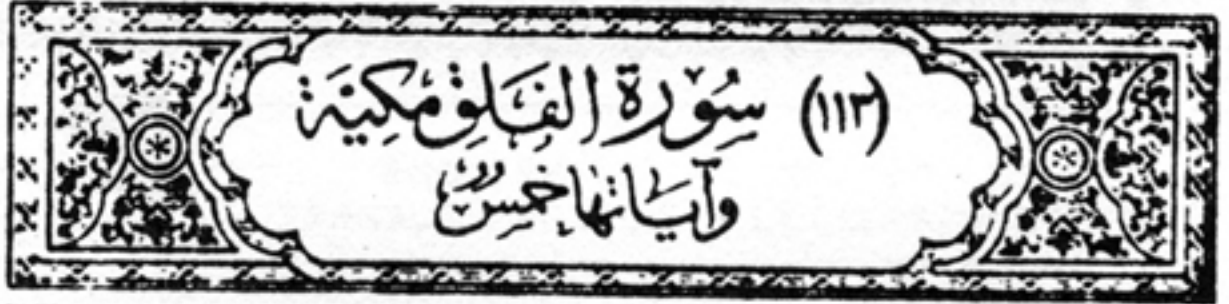 (١١٣) سُورَة الفَلَقِ مَكِّيَّة
وَآيَاتُهَا خَمْسٌ